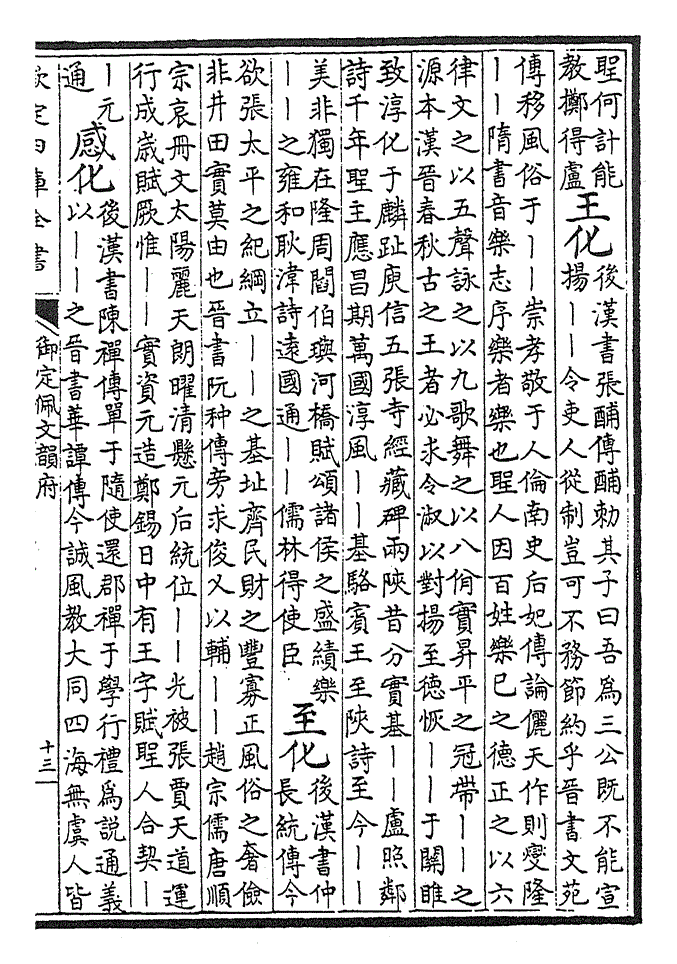 聖何計能
教擲得盧
王化
後漢書張酺傳酺勅其子曰吾爲三公既不能宣
揚——令吏人從制豈可不務節約乎晉書文苑
傳移風俗于——崇孝敬于人倫南史后妃傳論儷天作則燮隆
——隋書音樂志序樂者樂也聖人因百姓樂已之德正之以六
律文之以五聲詠之以九歌舞之以八佾實昇平之冠帶——之
源本漢晉春秋古之王者必求令淑以對揚至德恢——于關雎
致淳化于麟趾庾信五張寺經藏碑兩陝昔分實基——盧照鄰
詩千年聖主應昌期萬國淳風——基駱賓王至陝詩至今——
美非獨在隆周閻伯璵河橋賦頌諸侯之盛績樂
——之雍和耿湋詩遠國通——儒林得使臣
至化
後漢書仲
長統傳今
欲張太平之紀綱立——之基址齊民財之豐寡正風俗之奢儉
非井田實莫由也晉書阮种傳旁求俊乂以輔——趙宗儒唐順
宗哀冊文太陽麗天朗曜清懸元后統位——光被張賈天道運
行成歲賦厥惟——實資元造鄭錫日中有王字賦聖人合契—
—元
通
感化
後漢書陳禪傳單于隨使還郡禪于學行禮爲説通義
以——之晉書華譚傳今誠風教大同四海無虞人皆
欽定四庫全書
御定佩文韻府
十三